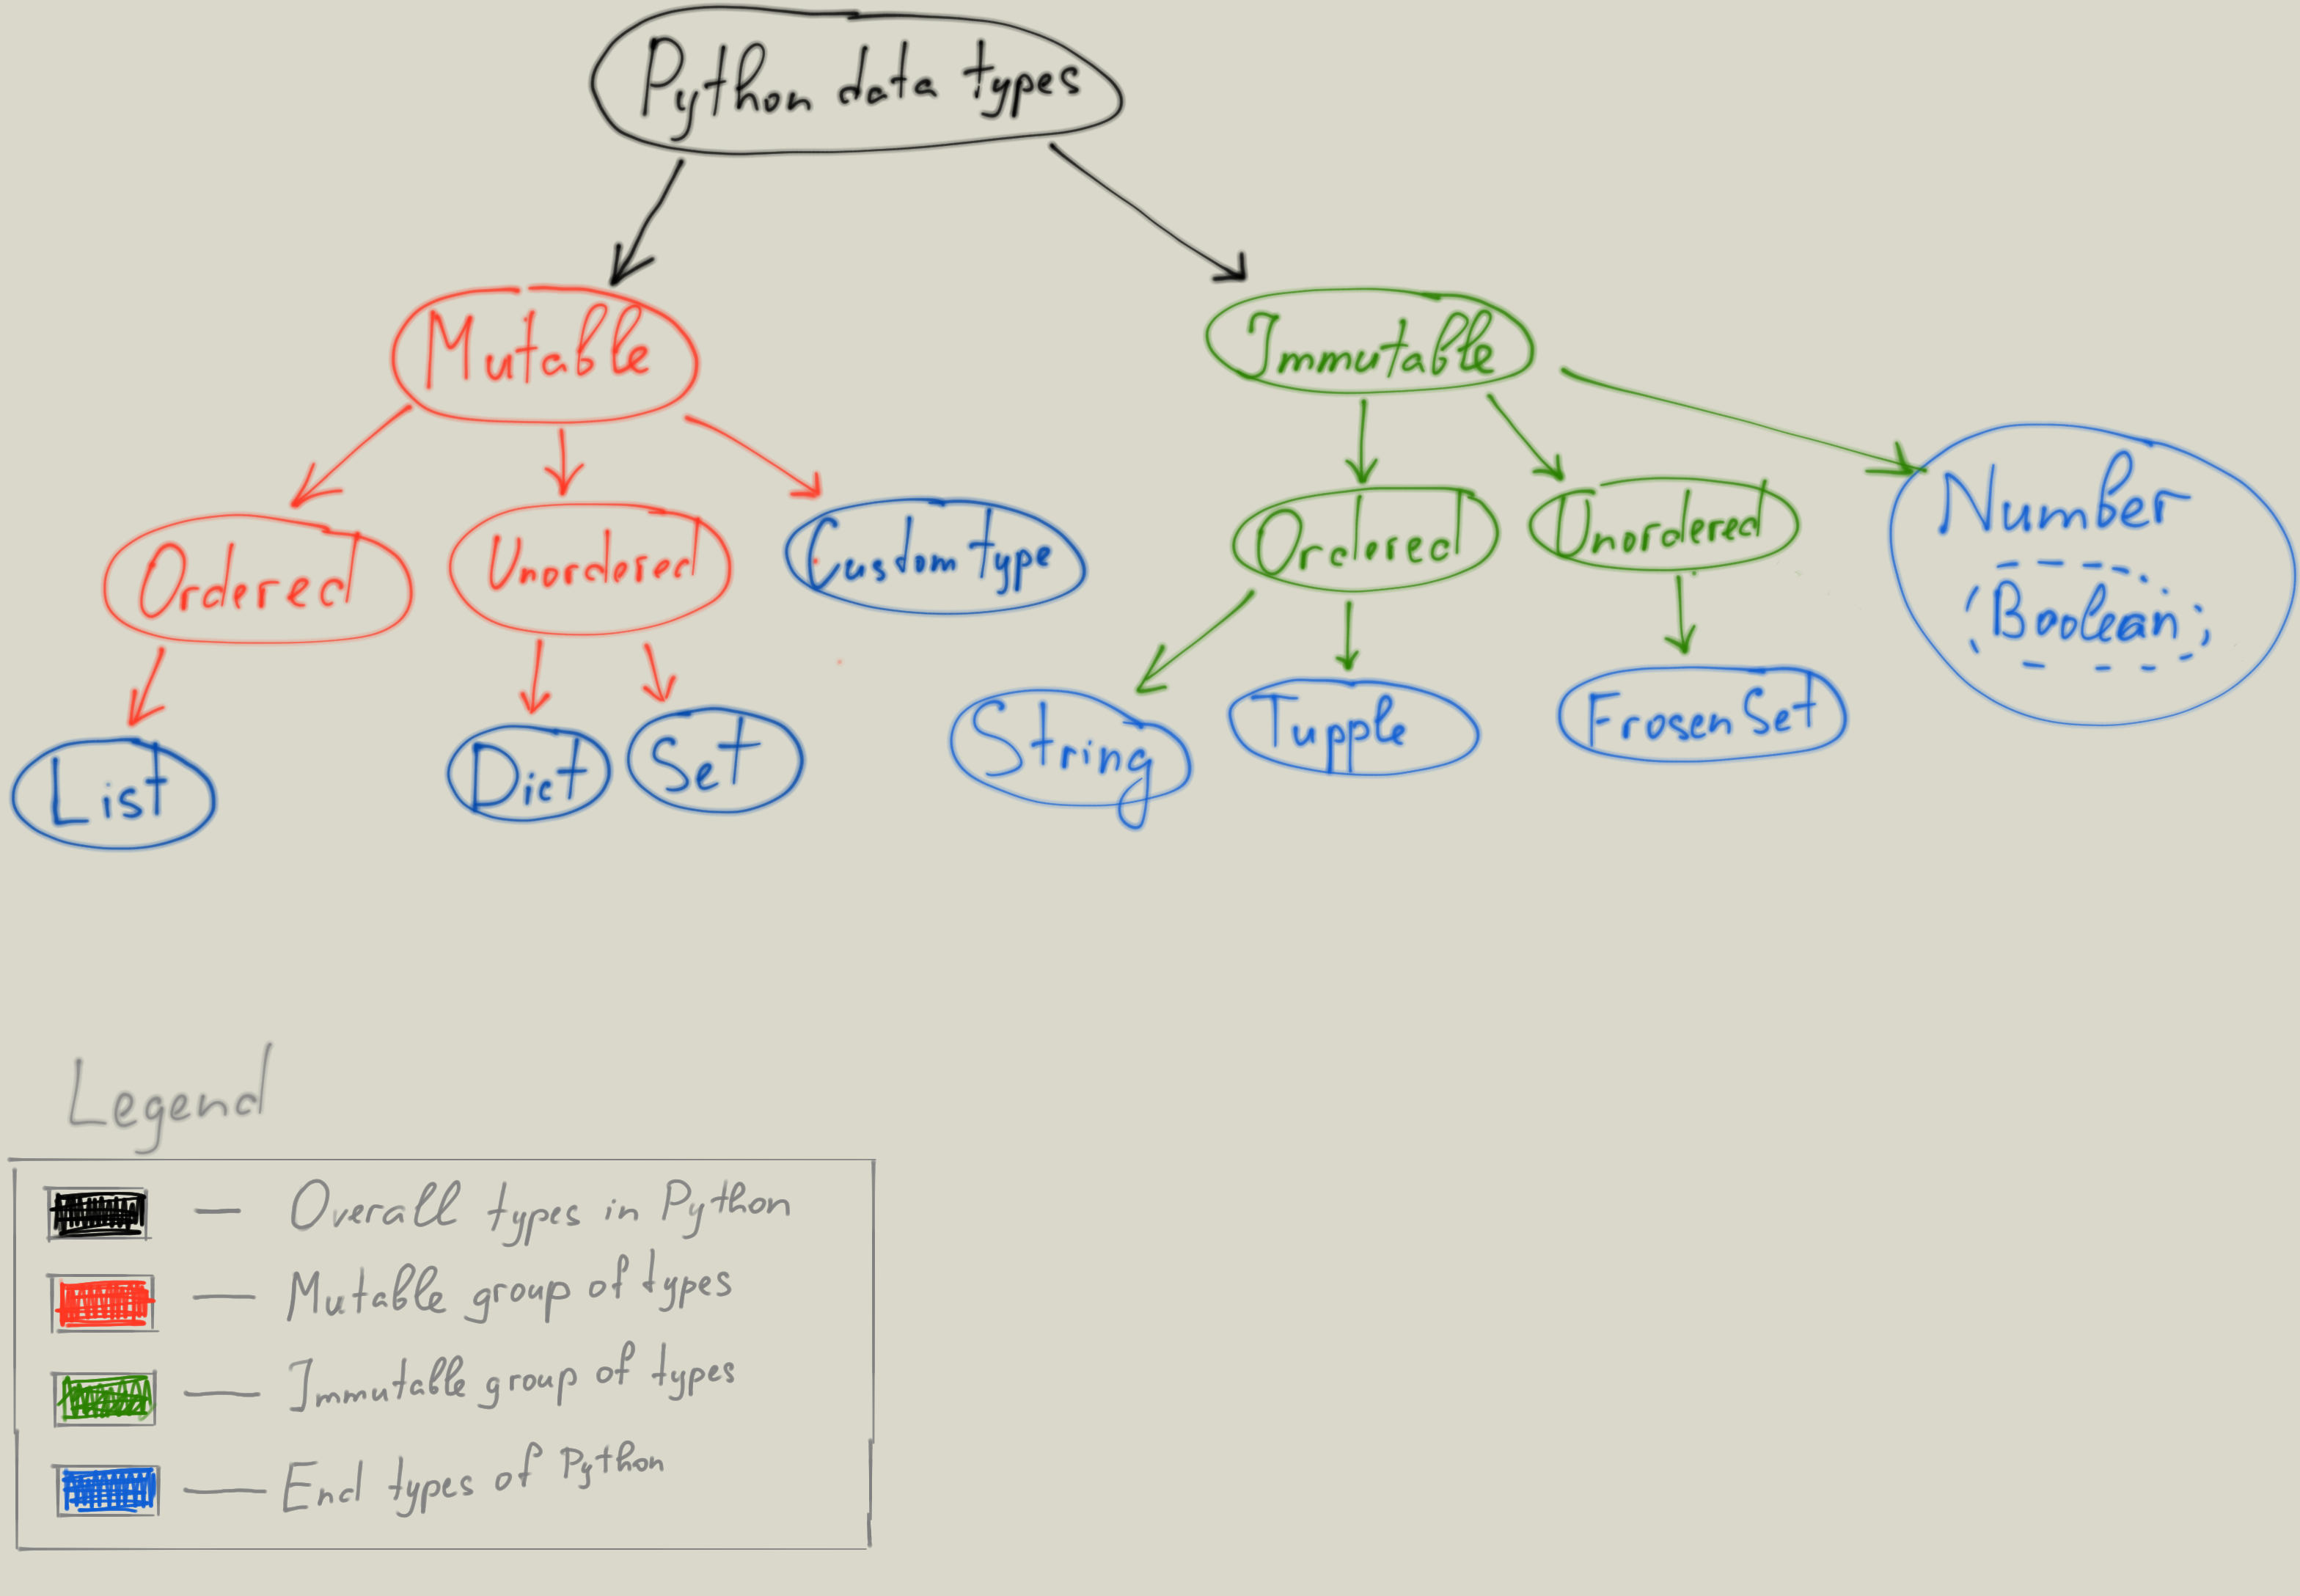 Python data types
Mutable
Immutable
Ordered
Unordered
Custom type
Ordered
Unordered
Number
Boolean
List
Dict
Set
String
Tupple
FrosenSet
Legend
Overall types in Python
Mutable group of types
Immutable group of types
End types of Python